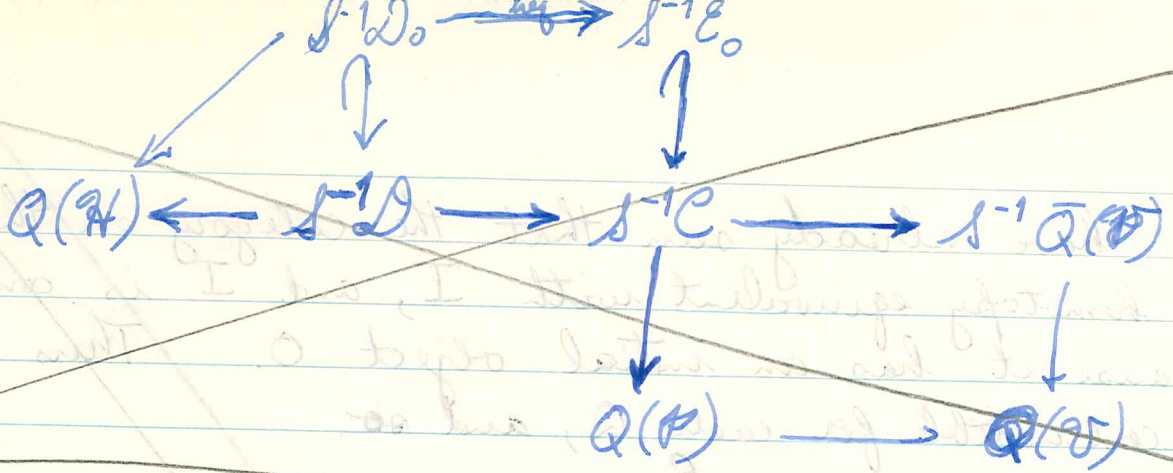 S⁻¹D₀ → S⁻¹E₀
Q(H) ← S⁻¹D → S⁻¹C → S⁻¹Q̄(V)
Q(P) → Q(V)